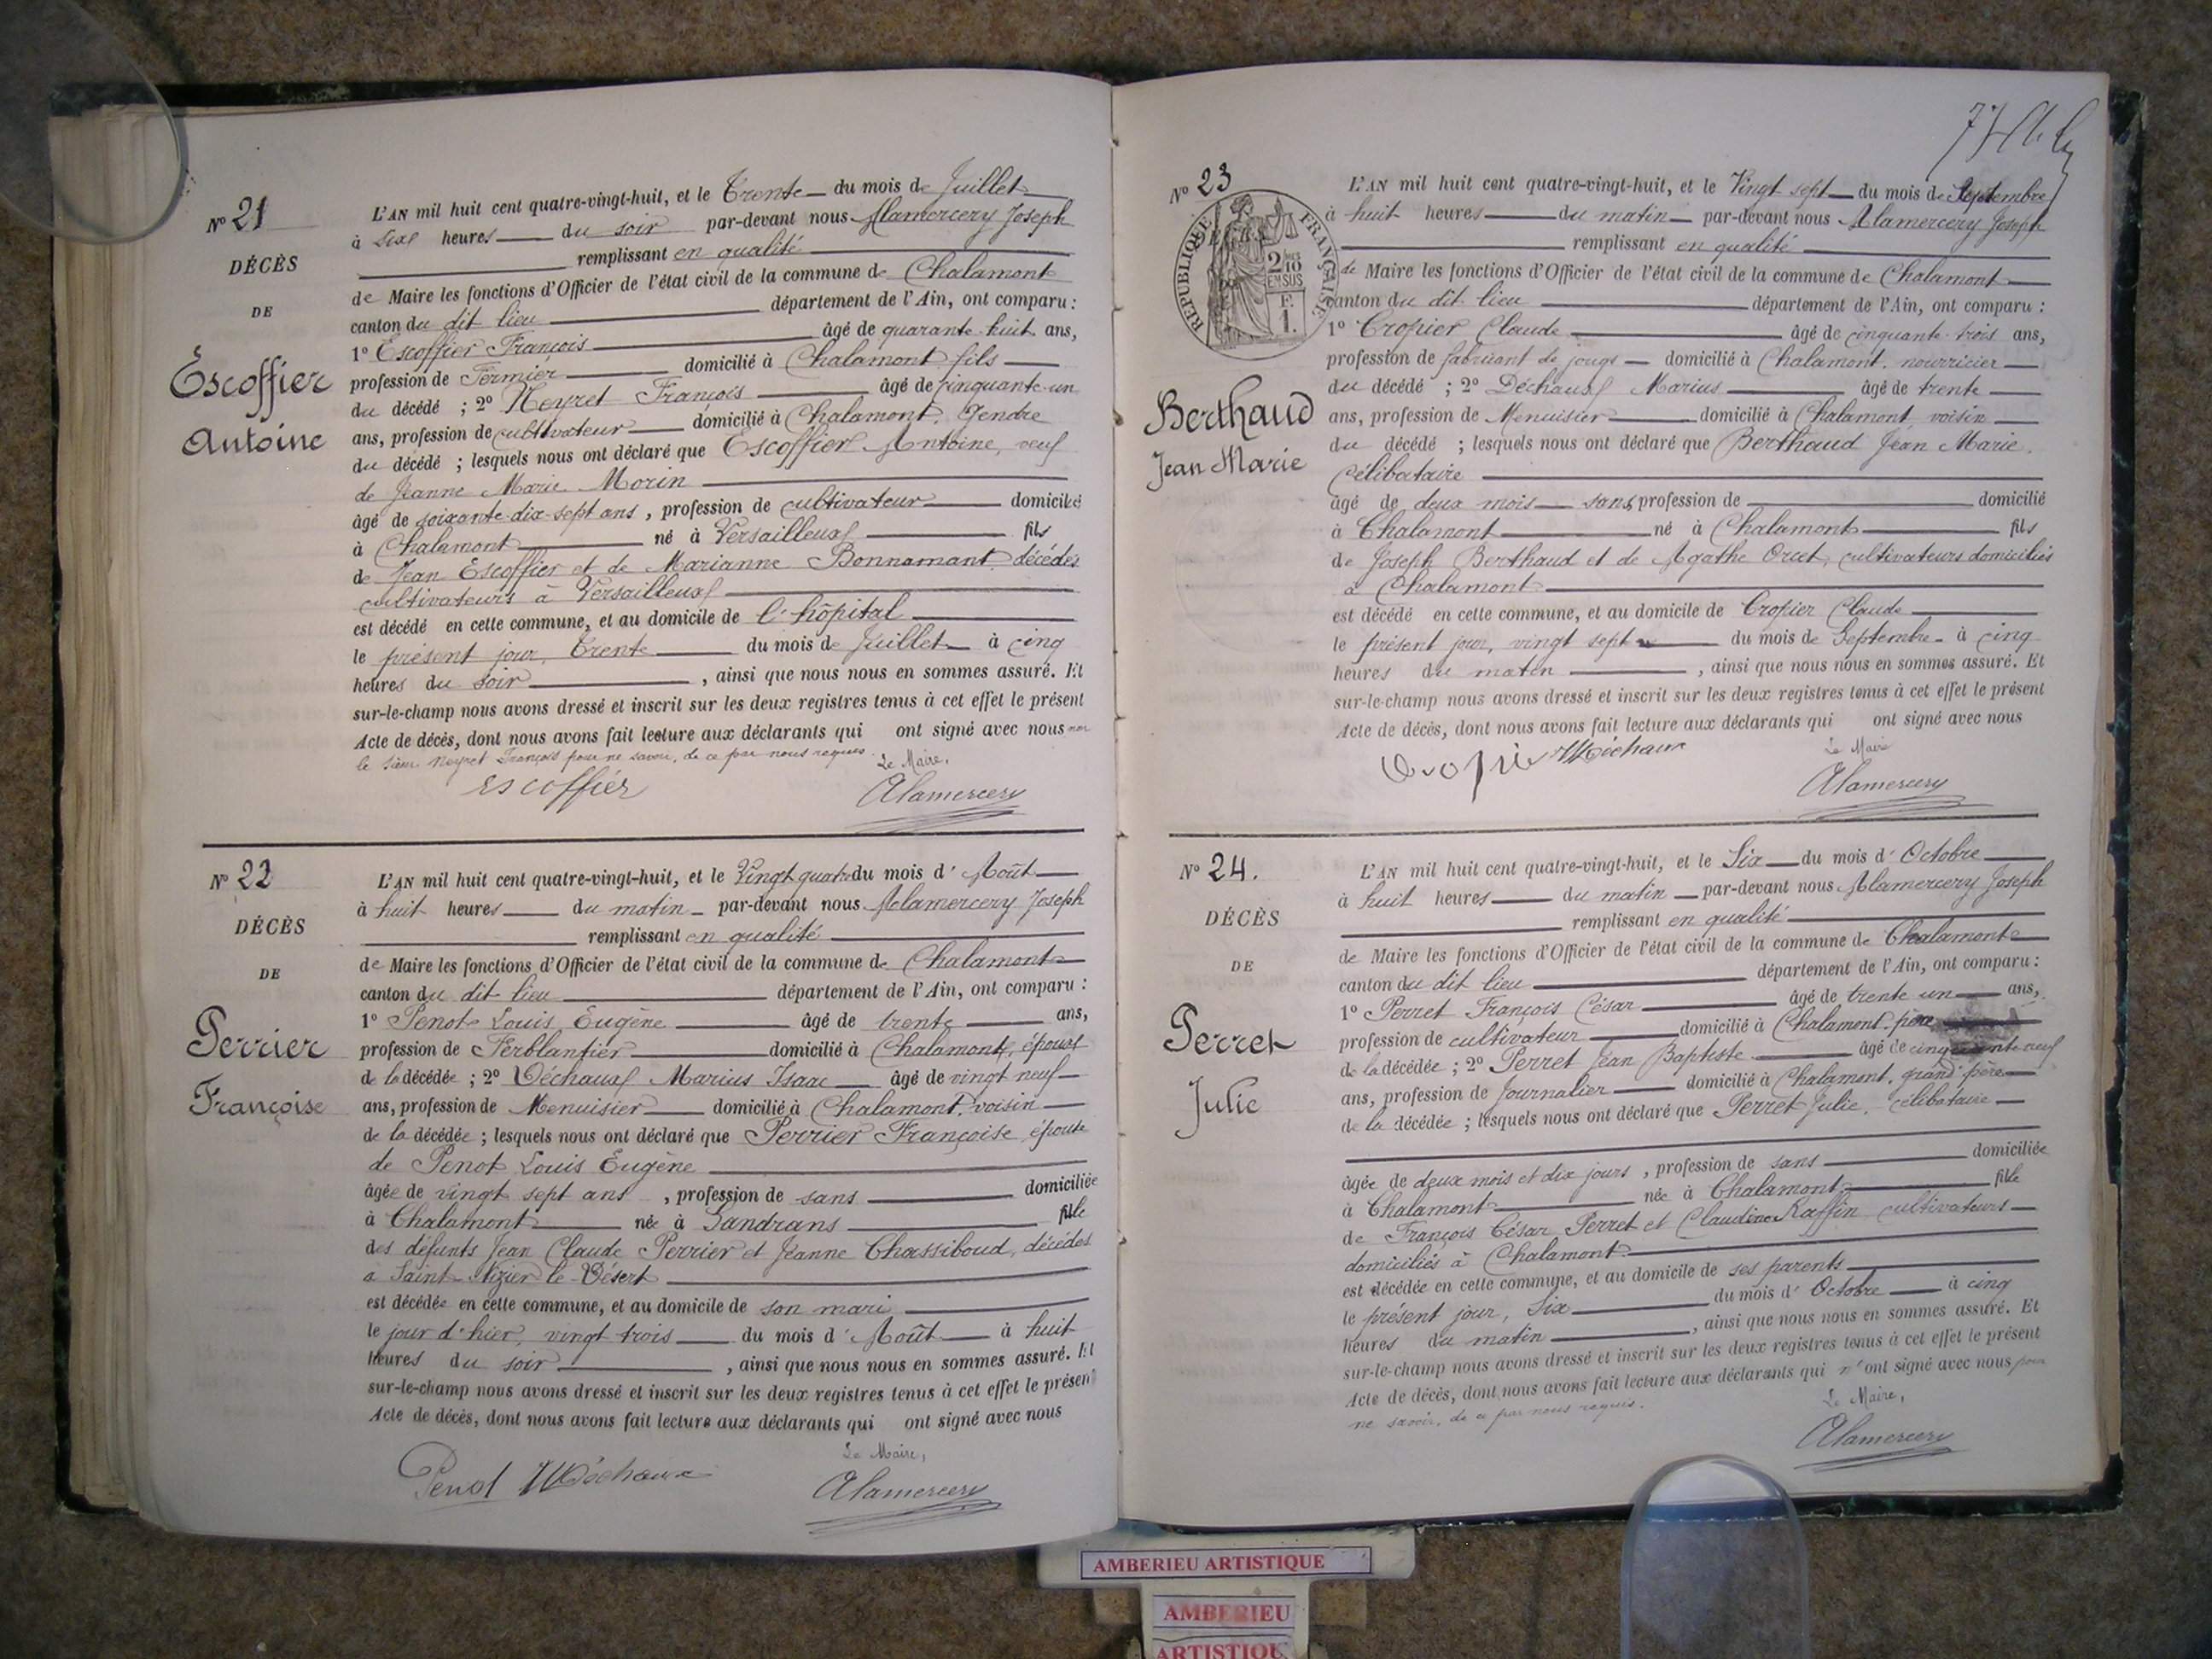 N° 21
DÉCÈS
DE
Escoffier
Antoine
L'AN mil huit cent quatre-vingt-huit, et le Trente du mois de Juillet
à Six heures du soir par-devant nous Alamercery Joseph
remplissant en qualité
de Maire les fonctions d'Officier de l'état civil de la commune de Chalamont
canton du dit lieu département de l'Ain, ont comparu :
1° Escoffier François âgé de quarante-huit ans,
profession de Fermier domicilié à Chalamont, fils
du décédé ; 2° Neyret François âgé de cinquante-un
ans, profession de cultivateur domicilié à Chalamont, Gendre
du décédé ; lesquels nous ont déclaré que Escoffier Antoine, veuf
de Jeanne Marie Morin
âgé de soixante-dix-sept ans, profession de cultivateur domicilié
à Chalamont né à Versailleux fils
de Jean Escoffier et de Marianne Bonnamant décédés
cultivateurs à Versailleux
est décédé en cette commune, et au domicile de l'hôpital
le présent jour, Trente du mois de Juillet à cinq
heures du soir, ainsi que nous nous en sommes assuré. Et
sur-le-champ nous avons dressé et inscrit sur les deux registres tenus à cet effet le présent
Acte de décès, dont nous avons fait lecture aux déclarants qui ont signé avec nous non
le sieur Neyret François pour ne savoir, de ce par nous requis.
Le Maire,
escoffier Alamercery
N° 22
DÉCÈS
DE
Perrier
Françoise
L'AN mil huit cent quatre-vingt-huit, et le Vingt quatre du mois d'Août
à huit heures du matin par-devant nous Alamercery Joseph
remplissant en qualité
de Maire les fonctions d'Officier de l'état civil de la commune de Chalamont
canton du dit lieu département de l'Ain, ont comparu :
1° Penot Louis Eugène âgé de trente ans,
profession de Ferblantier domicilié à Chalamont, époux
de la décédée ; 2° Déchaux Marius Isaac âgé de vingt neuf
ans, profession de Menuisier domicilié à Chalamont, voisin
de la décédée ; lesquels nous ont déclaré que Perrier Françoise, épouse
de Penot Louis Eugène
âgée de vingt sept ans, profession de sans domiciliée
à Chalamont née à Sandrans fille
des défunts Jean Claude Perrier et Jeanne Chassiboud, décédés
à Saint-Nizier le-Désert
est décédée en cette commune, et au domicile de son mari
le jour d'hier, vingt trois du mois d'Août à huit
heures du soir, ainsi que nous nous en sommes assuré. Et
sur-le-champ nous avons dressé et inscrit sur les deux registres tenus à cet effet le présent
Acte de décès, dont nous avons fait lecture aux déclarants qui ont signé avec nous
Le Maire,
Penot MDéchaux Alamercery
N° 23
RÉPUBLIQUE FRANÇAISE
2 DES
10
EN SUS
F.
1.
Berthaud
Jean Marie
L'AN mil huit cent quatre-vingt-huit, et le Vingt sept du mois de Septembre
à huit heures du matin par-devant nous Alamercery Joseph
remplissant en qualité
de Maire les fonctions d'Officier de l'état civil de la commune de Chalamont
canton du dit lieu département de l'Ain, ont comparu :
1° Cropier Claude âgé de cinquante-trois ans,
profession de fabricant de jougs domicilié à Chalamont, nourricier
du décédé ; 2° Déchaux Marius âgé de trente
ans, profession de Menuisier domicilié à Chalamont, voisin
du décédé ; lesquels nous ont déclaré que Berthaud Jean Marie,
célibataire
âgé de deux mois sans profession de domicilié
à Chalamont né à Chalamont fils
de Joseph Berthaud et de Agathe Orcet, cultivateurs domiciliés
à Chalamont
est décédé en cette commune, et au domicile de Cropier Claude
le présent jour, vingt sept du mois de Septembre à cinq
heures du matin, ainsi que nous nous en sommes assuré. Et
sur-le-champ nous avons dressé et inscrit sur les deux registres tenus à cet effet le présent
Acte de décès, dont nous avons fait lecture aux déclarants qui ont signé avec nous
Le Maire
Cropier MDéchaux Alamercery
N° 24.
DÉCÈS
DE
Perret
Julie
L'AN mil huit cent quatre-vingt-huit, et le Six du mois d'Octobre
à huit heures du matin par-devant nous Alamercery Joseph
remplissant en qualité
de Maire les fonctions d'Officier de l'état civil de la commune de Chalamont
canton du dit lieu département de l'Ain, ont comparu :
1° Perret François César âgé de trente un ans,
profession de cultivateur domicilié à Chalamont, père
de la décédée ; 2° Perret Jean Baptiste âgé de cinquante neuf
ans, profession de Journalier domicilié à Chalamont, grand père
de la décédée ; lesquels nous ont déclaré que Perret Julie, célibataire
âgée de deux mois et dix jours, profession de sans domiciliée
à Chalamont née à Chalamont fille
de François César Perret et Claudine Raffin cultivateurs
domiciliés à Chalamont
est décédée en cette commune, et au domicile de ses parents
le présent jour, Six du mois d'Octobre à cinq
heures du matin, ainsi que nous nous en sommes assuré. Et
sur-le-champ nous avons dressé et inscrit sur les deux registres tenus à cet effet le présent
Acte de décès, dont nous avons fait lecture aux déclarants qui n'ont signé avec nous pour
ne savoir, de ce par nous requis.
Le Maire,
Alamercery
AMBERIEU ARTISTIQUE
AMBERIEU
ARTISTIQUE